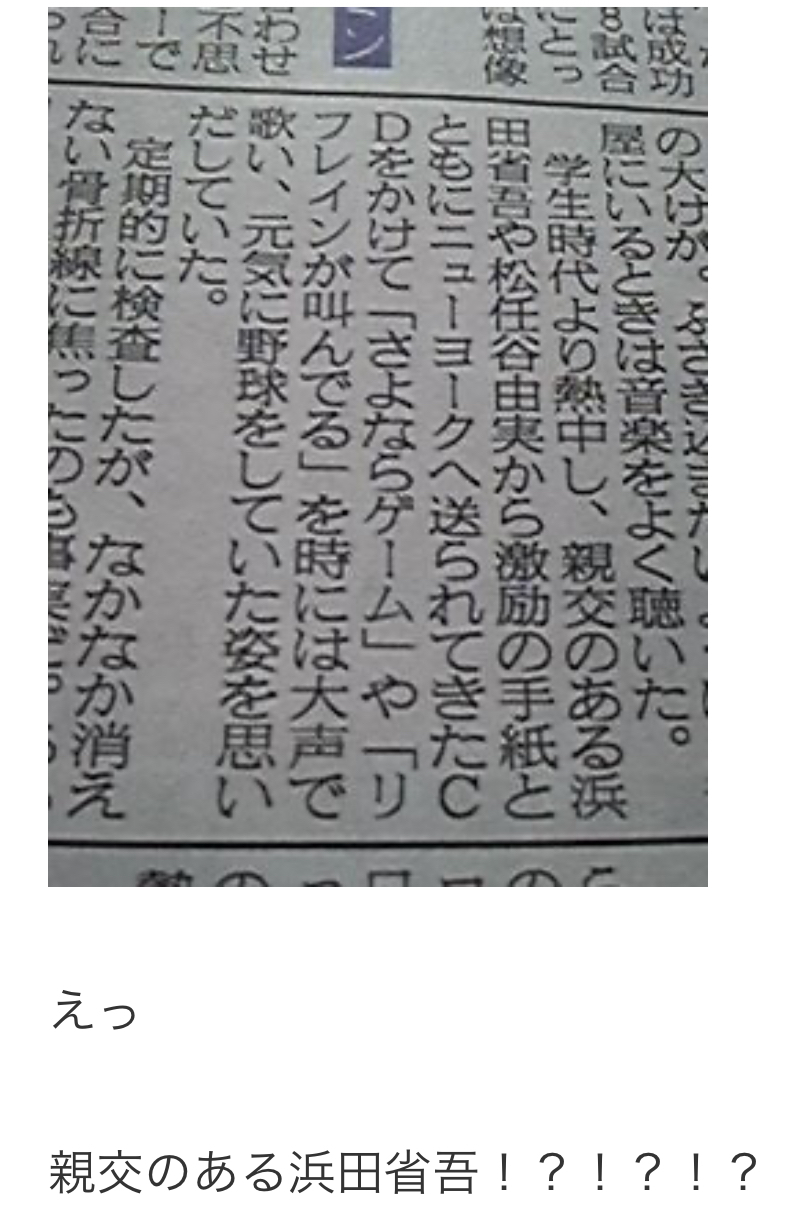 は成功
8試合
にとっ
は想像
ン
わせ
不思
ーで
合に
の大けが。ふさぎ込
屋にいるときは音楽をよく聴いた。
学生時代より熱中し、親交のある浜
田省吾や松任谷由実から激励の手紙と
ともにニューヨークへ送られてきたC
Dをかけて「さよならゲーム」や「リ
フレインが叫んでる」を時には大声で
歌い、元気に野球をしていた姿を思い
だしていた。
定期的に検査したが、なかなか消え
ない骨折線に焦ったのも事実だ。
えっ
親交のある浜田省吾！？！？！？